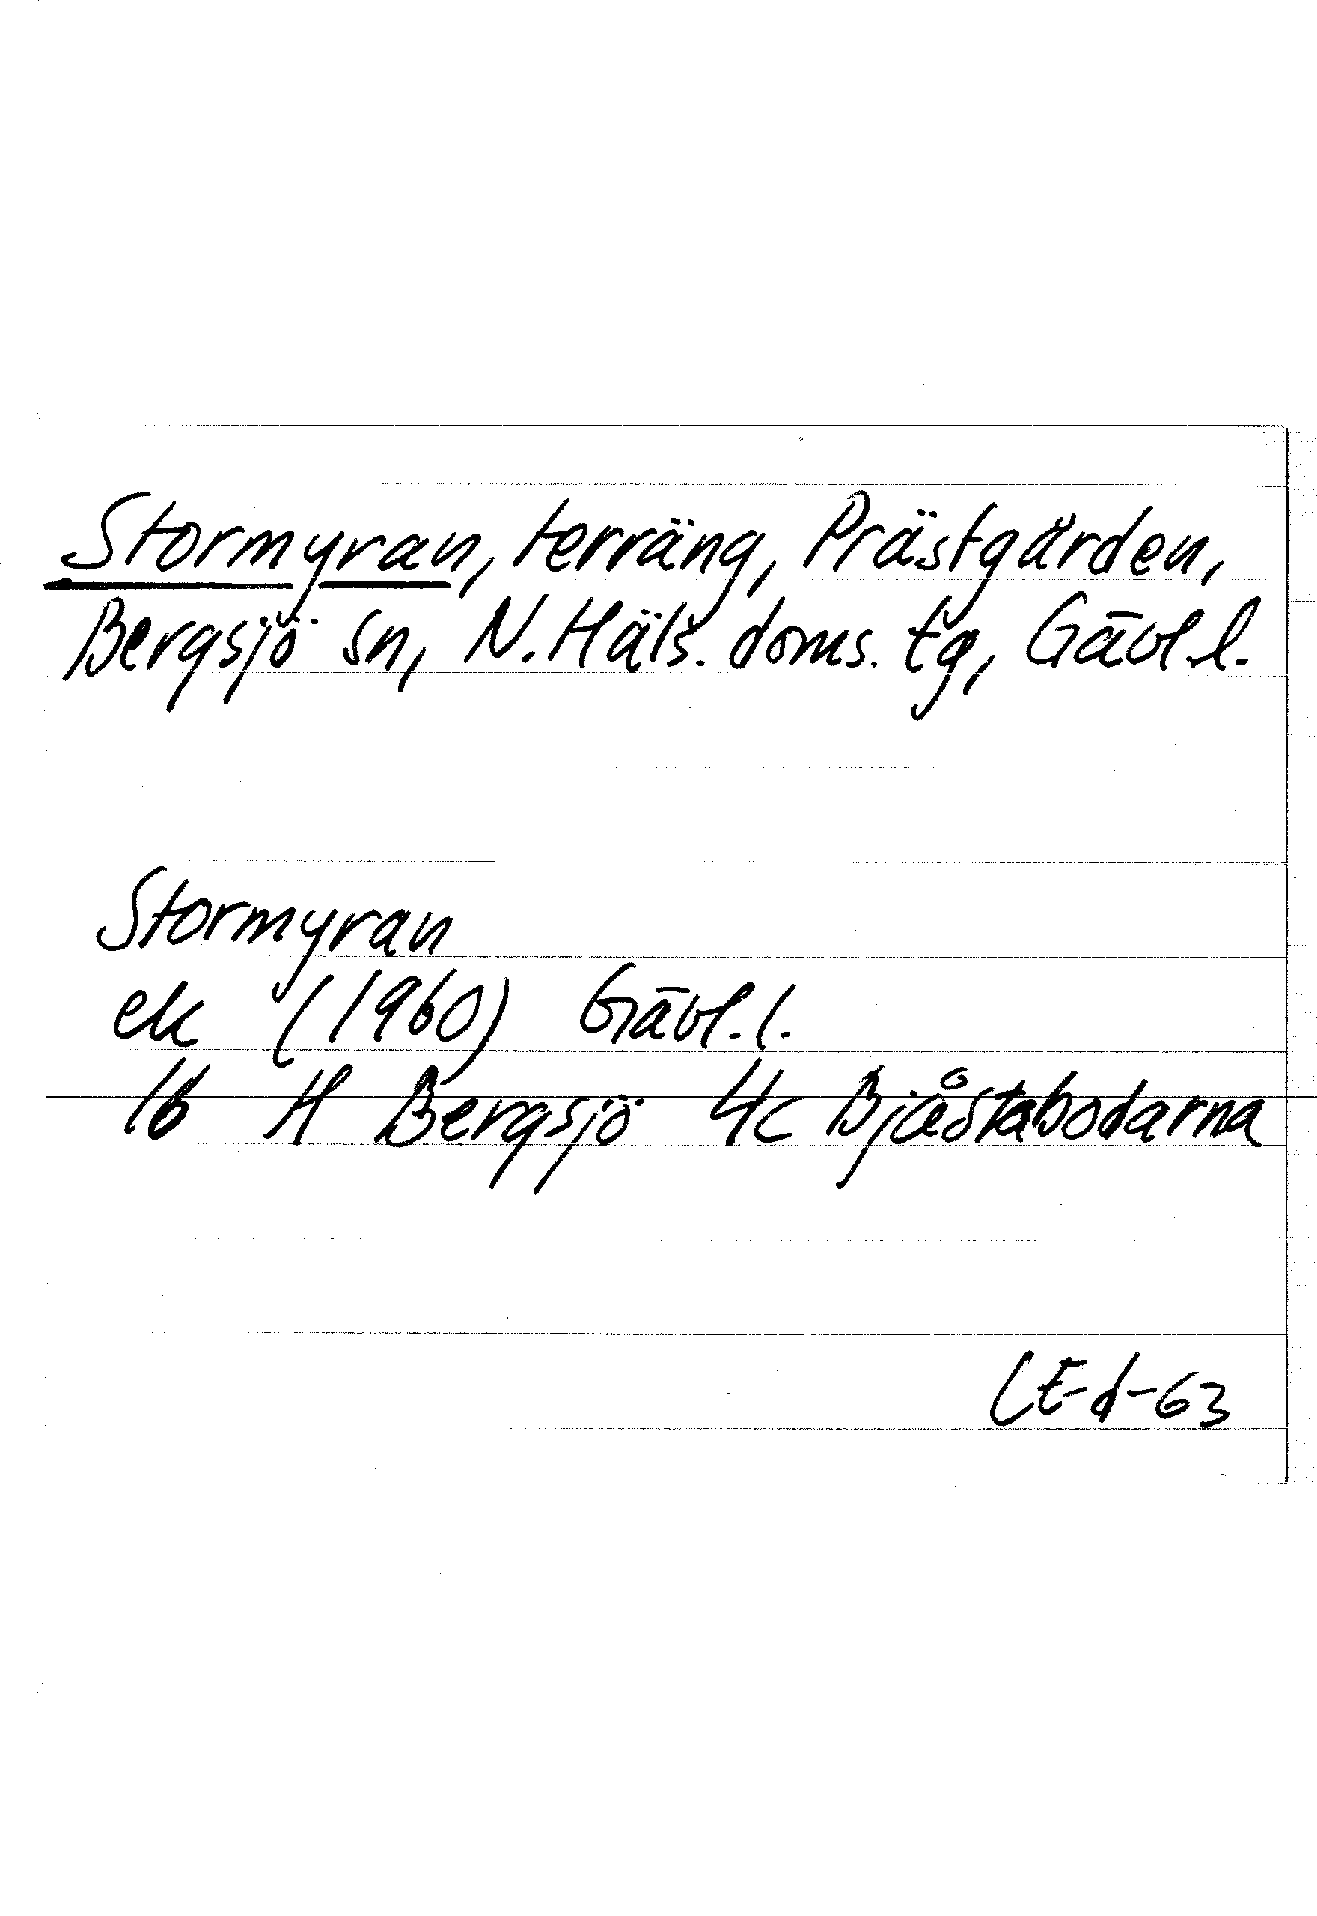 Stormyran, terräng, Prästgården,
Bergsjö sn, N. Häls. doms. tg, Gävl. l.
Stormyran
ek (1960) Gävl. l.
16 H Bergsjö 4c Bjåstabodarna
LE-d-63